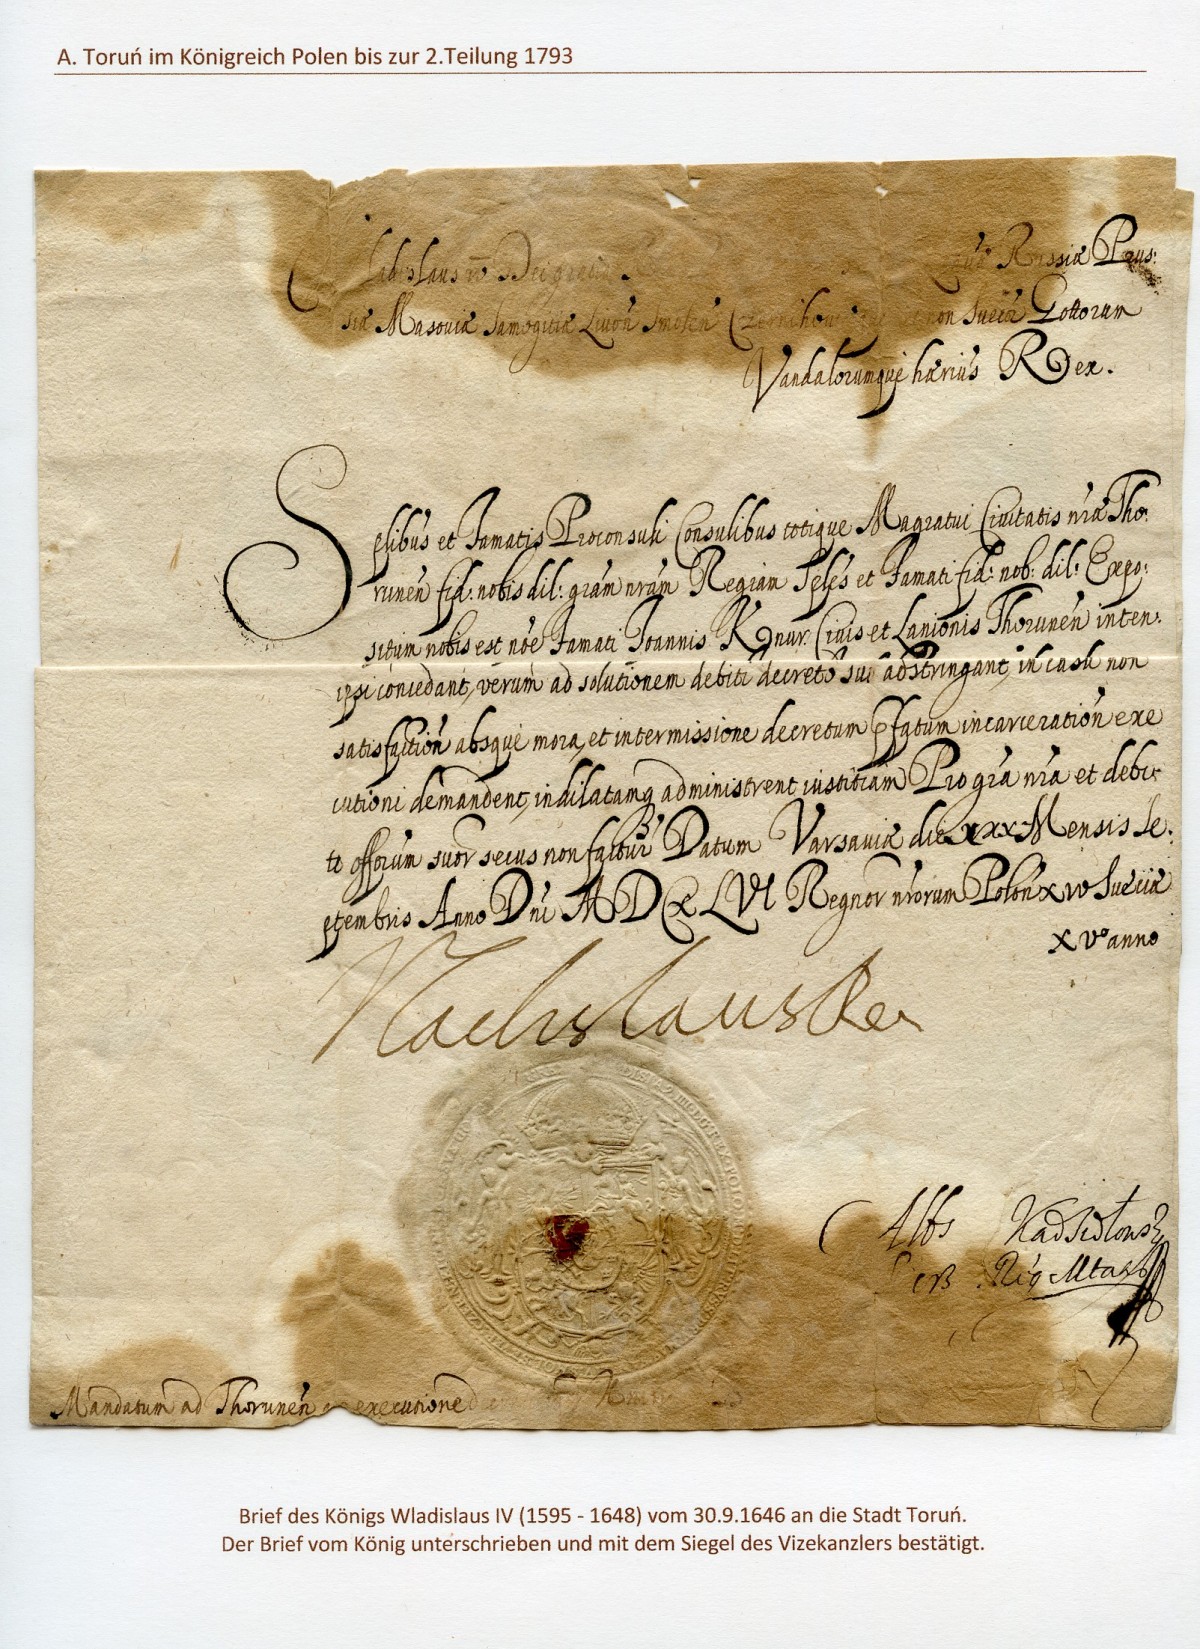 A. Toruń im Königreich Polen bis zur 2.Teilung 1793
Vladislaus IV Dei gratia Russiæ Prus:
siæ Masoviæ Samogitiæ Livon Smolen Czernihow non Sueciæ Gottorum
Vandalorumque hærius Rex.
Spłibus et Famatis Proconsuli Consulibus totique Magratui Civitatis nræ Tho:
runen fid: nobis dil: gram nram Regiam Sples et Famati fid: nob: dil: Expo:
situm nobis est noe Famati Joannis Knur. Civis et Lanionis Thorunen inten:
ipsi concedant, verum ad solutionem debiti decreto suo adstringant, in casu non
satisfaction absque mora, et intermissione decretum pfatum incarceration exe
cutioni demandent, indilatamq administrent iustitiam Pro gra nra et debi:
to officium suor secus non facturi Datum Varsaviæ die xxx Mensis Se:
ptembris Anno Dni MDCXLVI Regnor nrorum Polon XIV Sueciæ
XVo anno
Vladislaus Rex
Albs Kadzidłowsk
Reg Mtas
Mandatum ad Thorunen executione
Brief des Königs Wladislaus IV (1595 - 1648) vom 30.9.1646 an die Stadt Toruń.
Der Brief vom König unterschrieben und mit dem Siegel des Vizekanzlers bestätigt.